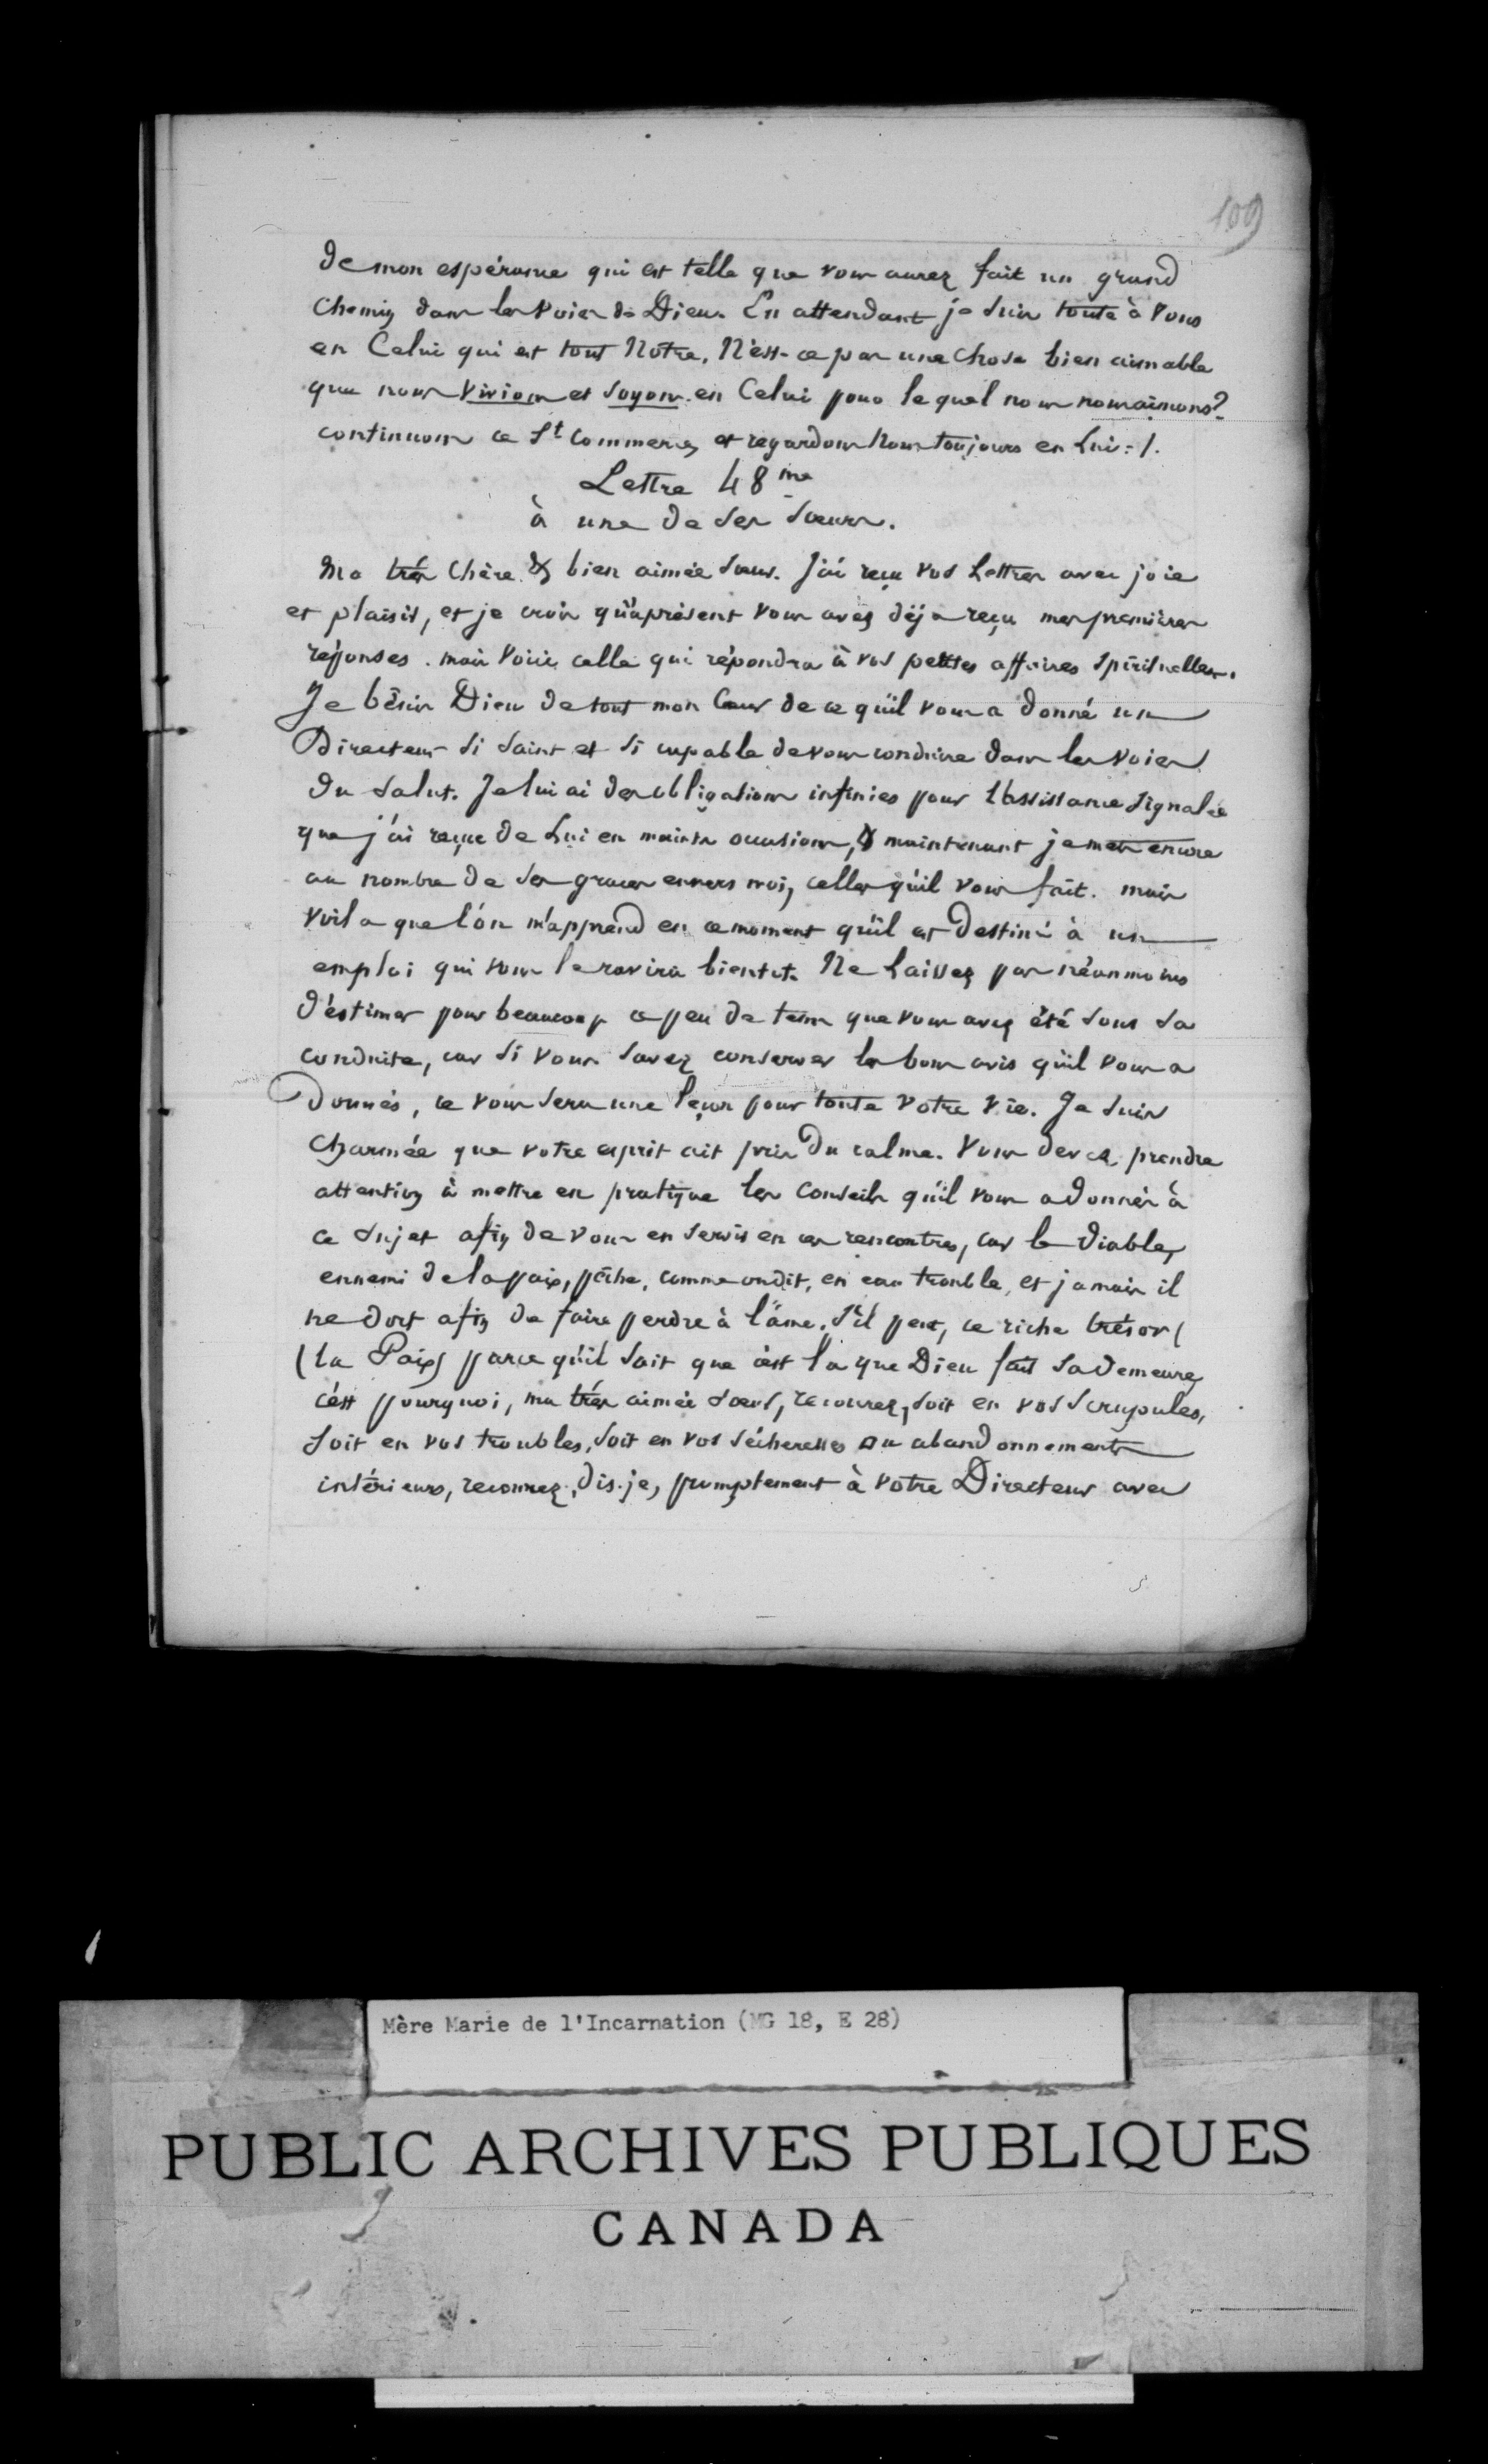 109
de mon espérance qui est telle que vous aurez fait un grand
chemin dans les voies de Dieu. En attendant je suis toute à vous
en Celui qui est tout Nôtre. N'est-ce pas une chose bien aimable
que nous vivions et soyons en Celui pour lequel nous nous aimons?
continuons ce St commerce, et regardons Nous toujours en Lui =/.
Lettre 48me
à une de ses sœurs.
Ma très chère & bien aimée sœur. J'ai reçu vos Lettres avec joie
et plaisir, et je crois qu'àprésent vous avez déja reçu mes premières
réponses. mais voici celle qui répondra à vos petites affaires spirituelles.
Je bénis Dieu de tout mon Cœur de ce qu'il vous a donné un
Directeur si saint et si capable de vous conduire dans les voies
du salut. Je lui ai des obligations infinies pour l'assistance signalée
que j'ai reçue de Lui en maintes occasions, & maintenant je mets encore
au nombre de ses graces envers moi, celles qu'il vous fait. mais
voila que l'on m'apprend en ce moment qu'il est destiné à un
emploi qui vous le ravira bientot. Ne laissez pas néanmoins
d'estimer pour beaucoup ce peu de tems que vous avez été sous sa
conduite, car si vous savez conserver les bons avis qu'il vous a
donnés, ce vous sera une leçon pour toute votre vie. Je suis
charmée que votre esprit ait pris du calme. Vous devez prendre
attention à mettre en pratique les conseils qu'il vous a donnés à
ce sujet afin de vous en servir en ces rencontres, car le diable,
ennemi de la paix, pêche, comme on dit, en eau trouble, et jamais il
ne dort afin de faire perdre à l'âme, s'il peut, ce riche trésor (
(la Paix) parce qu'il sait que c'est la que Dieu fait sa demeure,
c'est pourquoi, ma très aimée sœur, recourez, soit en vos scrupules,
soit en vos troubles, soit en vos sécheresses ou abandonnements
intérieurs, recourez, dis-je, promptement à votre Directeur avec
Mère Marie de l'Incarnation (MG 18, E 28)
PUBLIC ARCHIVES PUBLIQUES
CANADA